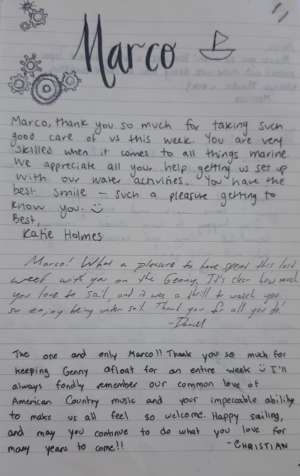 Marco
Marco, thank you so much for taking such
good care of us this week. You are very
skilled when it comes to all things marine.
We appreciate all your help getting us set up
with our water activities. You have the
best smile – such a pleasure getting to
know you. :)
Best,
Katie Holmes
Marco! What a pleasure to have spent this last
week with you on the Genny. It's clear how much
you love to sail, and it was a thrill to watch you
so enjoy being under sail. Thank you for all you do.
- Daniel
The one and only Marco!! Thank you so much for
keeping Genny afloat for an entire week :) I'll
always fondly remember our common love of
American Country music and your impeccable ability
to make us all feel so welcome. Happy sailing,
and may you continue to do what you love for
many years to come!!
- CHRISTIAN